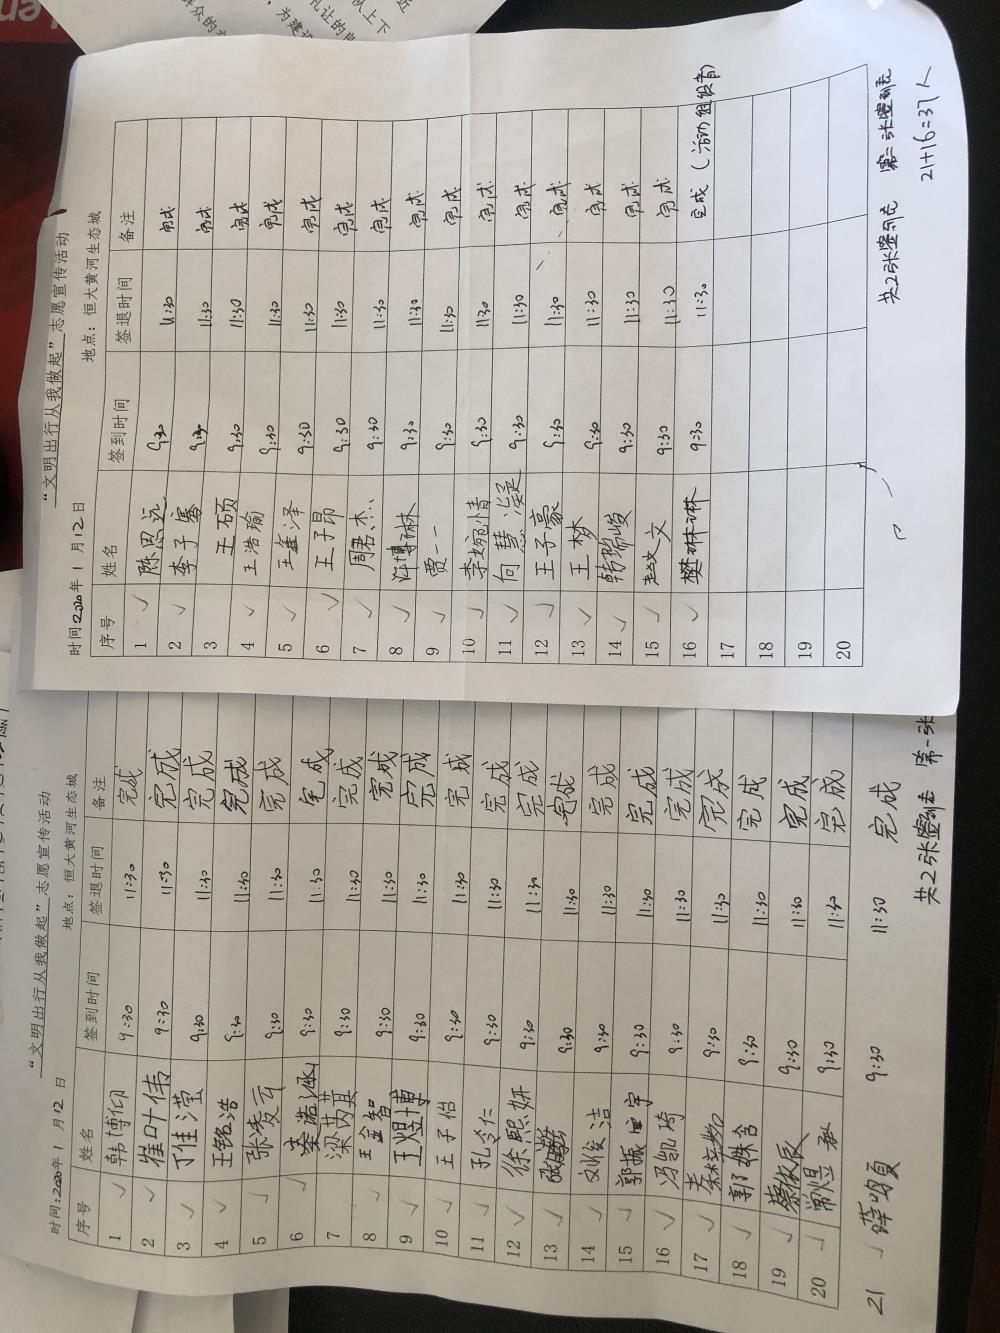 “文明出行从我做起”志愿宣传活动
时间2020年1月12日 地点：恒大黄河生态城
序号 姓名 签到时间 签退时间 备注
1 陈思远 9:30 11:30 完成
2 李子骞 9:30 11:30 完成
3 王硕 9:30 11:30 完成
4 王浩瑜 9:30 11:30 完成
5 王鑫泽 9:30 11:30 完成
6 王子昂 9:30 11:30 完成
7 周君杰 9:30 11:30 完成
8 许博琳 9:30 11:30 完成
9 贾一一 9:30 11:30 完成
10 李婉情 9:30 11:30 完成
11 何慧凝 9:30 11:30 完成
12 王子豪 9:30 11:30 完成
13 王梦 9:30 11:30 完成
14 韩瑞峻 9:30 11:30 完成
15 赵文文 9:30 11:30 完成
16 樊琳琳 9:30 11:30 完成（活动组织者）
17
18
19
20
共2张签到表 第二张签到表
21+16=37人
“文明出行从我做起”志愿宣传活动
时间:2020年1月12日 地点：恒大黄河生态城
序号 姓名 签到时间 签退时间 备注
1 韩博仰 9:30 11:30 完成
2 崔叶伟 9:30 11:30 完成
3 丁佳滢 9:30 11:30 完成
4 王铭浩 9:30 11:30 完成
5 张凌云 9:30 11:30 完成
6 秦浩涵 9:30 11:30 完成
7 梁芮萁 9:30 11:30 完成
8 王金智 9:30 11:30 完成
9 王煜博 9:30 11:30 完成
10 王子怡 9:30 11:30 完成
11 孔令仁 9:30 11:30 完成
12 徐熙妍 9:30 11:30 完成
13 9:30 11:30 完成
14 刘俊洁 9:30 11:30 完成
15 郭振宇 9:30 11:30 完成
16 冯凯琦 9:30 11:30 完成
17 9:30 11:30 完成
18 郭姝含 9:30 11:30 完成
19 蔡依辰 9:30 11:30 完成
20 常煜 9:30 11:30 完成
21 薛 9:30 11:30 完成
共2张签到表 第一张